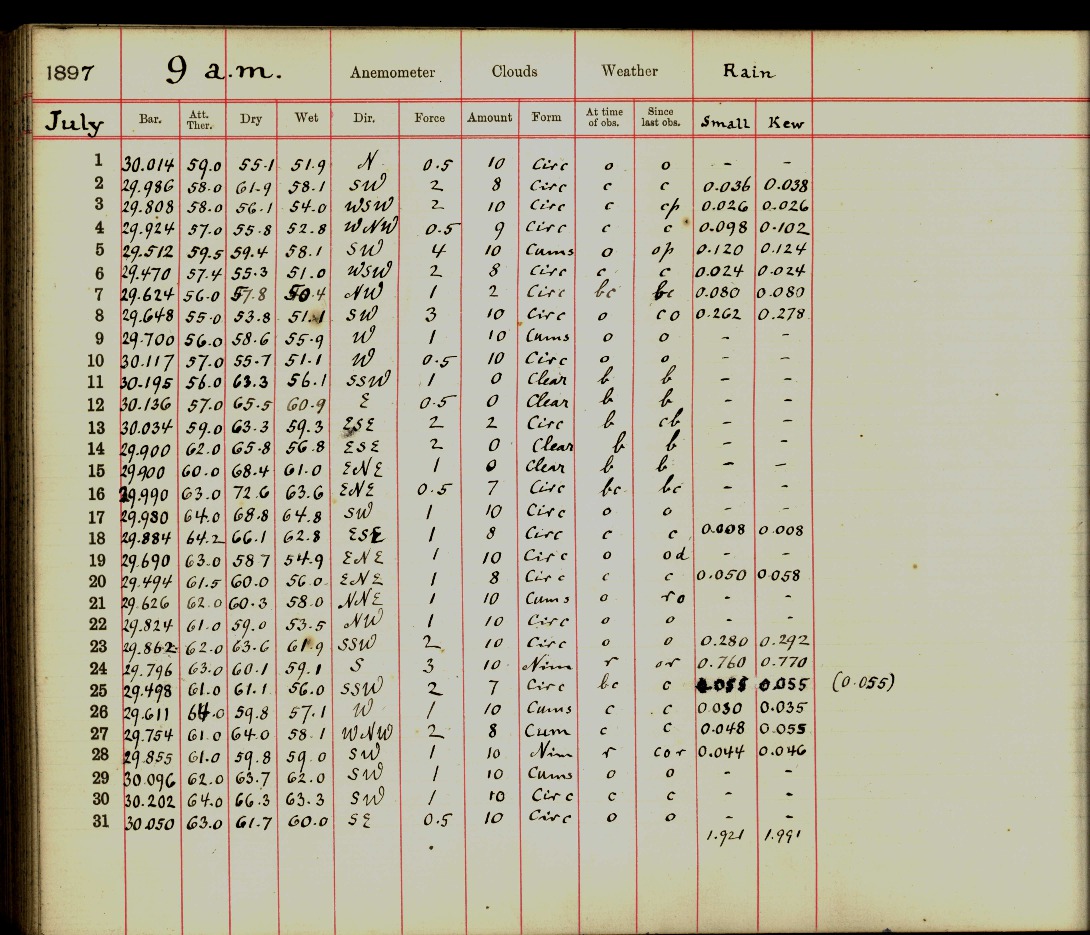 1897 9 a.m. Anemometer Clouds Weather Rain
July Bar. Att. Ther. Dry Wet Dir. Force Amount Form At time of obs. Since last obs. Small Kew
1 30.014 59.0 55.1 51.9 N 0.5 10 Circ o o - -
2 29.986 58.0 61.9 58.1 SW 2 8 Circ c c 0.036 0.038
3 29.808 58.0 56.1 54.0 WSW 2 10 Circ c cp 0.026 0.026
4 29.924 57.0 55.8 52.8 WNW 0.5 9 Circ c c 0.098 0.102
5 29.512 59.5 59.4 58.1 SW 4 10 Cums o op 0.120 0.124
6 29.470 57.4 55.3 51.0 WSW 2 8 Circ c c 0.024 0.024
7 29.624 56.0 57.8 50.4 NW 1 2 Circ bc bc 0.080 0.080
8 29.648 55.0 53.8 51.1 SW 3 10 Circ o co 0.262 0.278
9 29.700 56.0 58.6 55.9 W 1 10 Cums o o - -
10 30.117 57.0 55.7 51.1 W 0.5 10 Circ o o - -
11 30.195 56.0 63.3 56.1 SSW 1 0 Clear b b - -
12 30.136 57.0 65.5 60.9 E 0.5 0 Clear b b - -
13 30.034 59.0 63.3 59.3 ESE 2 2 Circ b cb - -
14 29.900 62.0 65.8 56.8 ESE 2 0 Clear b b - -
15 29.900 60.0 68.4 61.0 ENE 1 0 Clear b b - -
16 29.990 63.0 72.6 63.6 ENE 0.5 7 Circ bc bc - -
17 29.980 64.0 68.8 64.8 SW 1 10 Circ o o - -
18 29.884 64.2 66.1 62.8 ESE 1 8 Circ c c 0.008 0.008
19 29.690 63.0 58.7 54.9 ENE 1 10 Circ o od - -
20 29.494 61.5 60.0 56.0 ENE 1 8 Circ c c 0.050 0.058
21 29.626 62.0 60.3 58.0 NNE 1 10 Cums o ro - -
22 29.824 61.0 59.0 53.5 NW 1 10 Circ o o - -
23 29.862 62.0 63.6 61.9 SSW 2 10 Circ o o 0.280 0.292
24 29.796 63.0 60.1 59.1 S 3 10 Nim r or 0.760 0.770
25 29.498 61.0 61.1 56.0 SSW 2 7 Circ bc c 0.055 0.055 (0.055)
26 29.611 64.0 59.8 57.1 W 1 10 Cums c c 0.030 0.035
27 29.754 61.0 64.0 58.1 WNW 2 8 Cum c c 0.048 0.055
28 29.855 61.0 59.8 59.0 SW 1 10 Nim r cor 0.044 0.046
29 30.096 62.0 63.7 62.0 SW 1 10 Cums o o - -
30 30.202 64.0 66.3 63.3 SW 1 10 Circ c c - -
31 30.050 63.0 61.7 60.0 SE 0.5 10 Circ o o - -
1.921 1.991